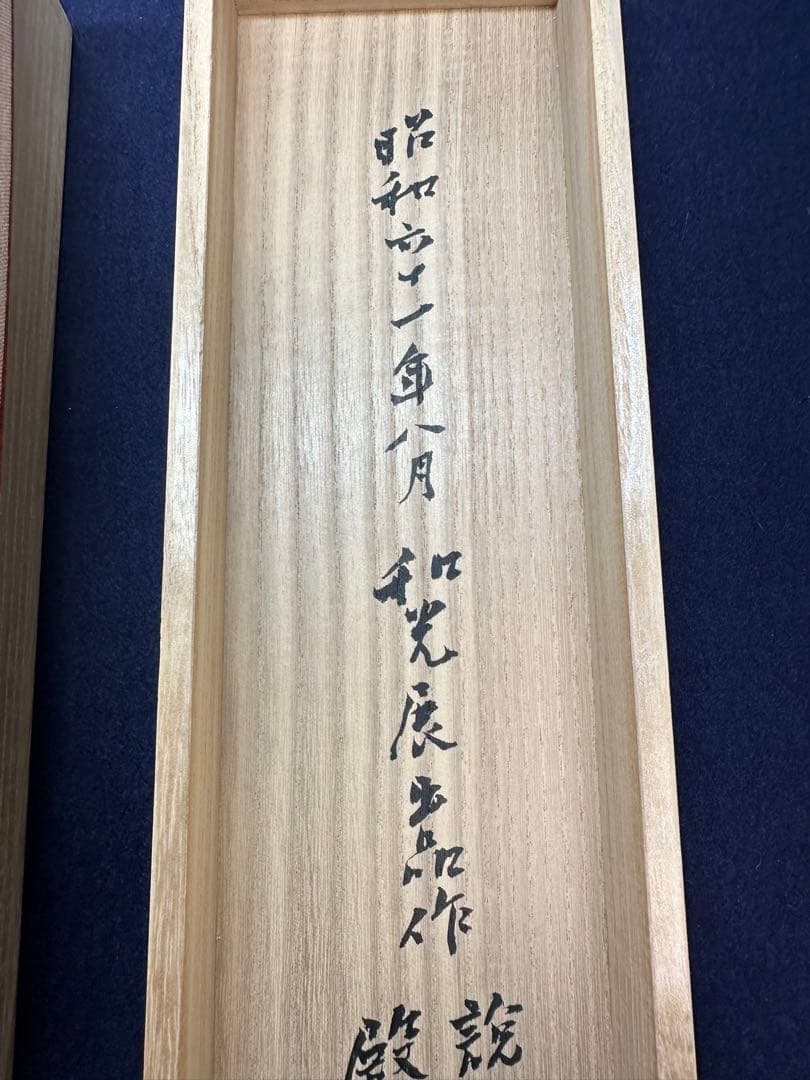 昭和六十一年八月　和光展出品作
説
殿